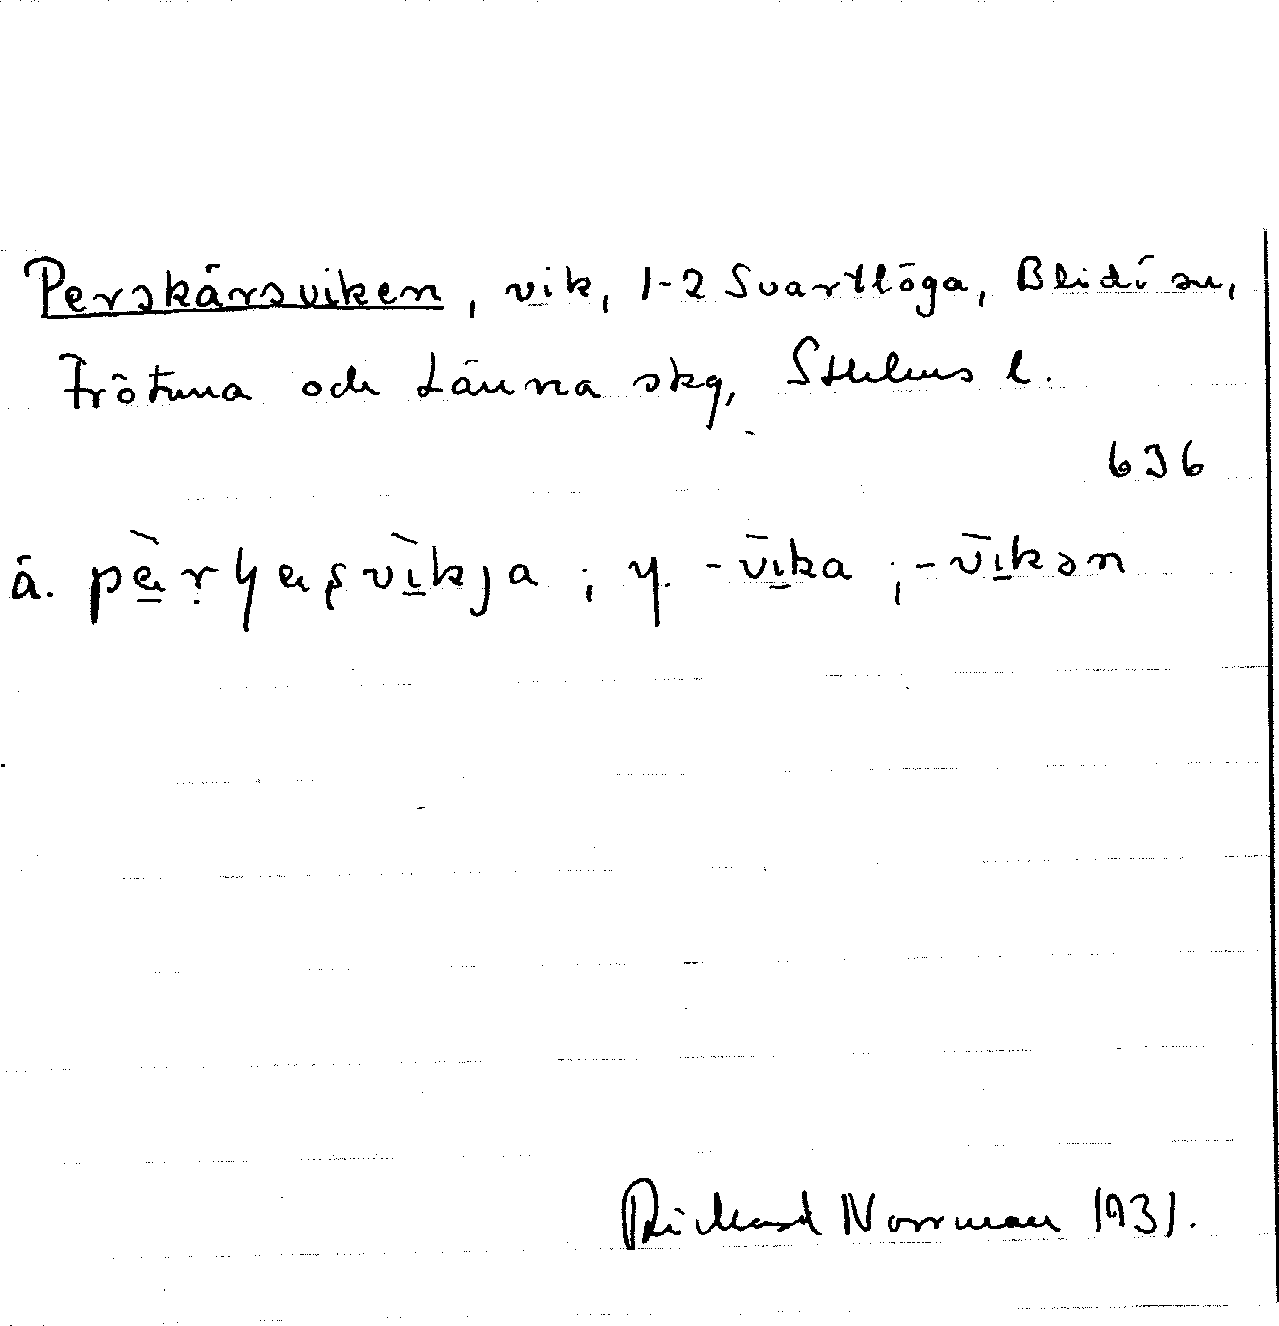 Perskärsviken, vik, 1-2 Svartlöga, Blidö sn,
Frötuna och Länna skg, Sthlms l.
636
ä. pɛ̀rɧɛʂvìkja ; y. -v̄ika ; -v̄ikən
Rickard Norrman 1931.